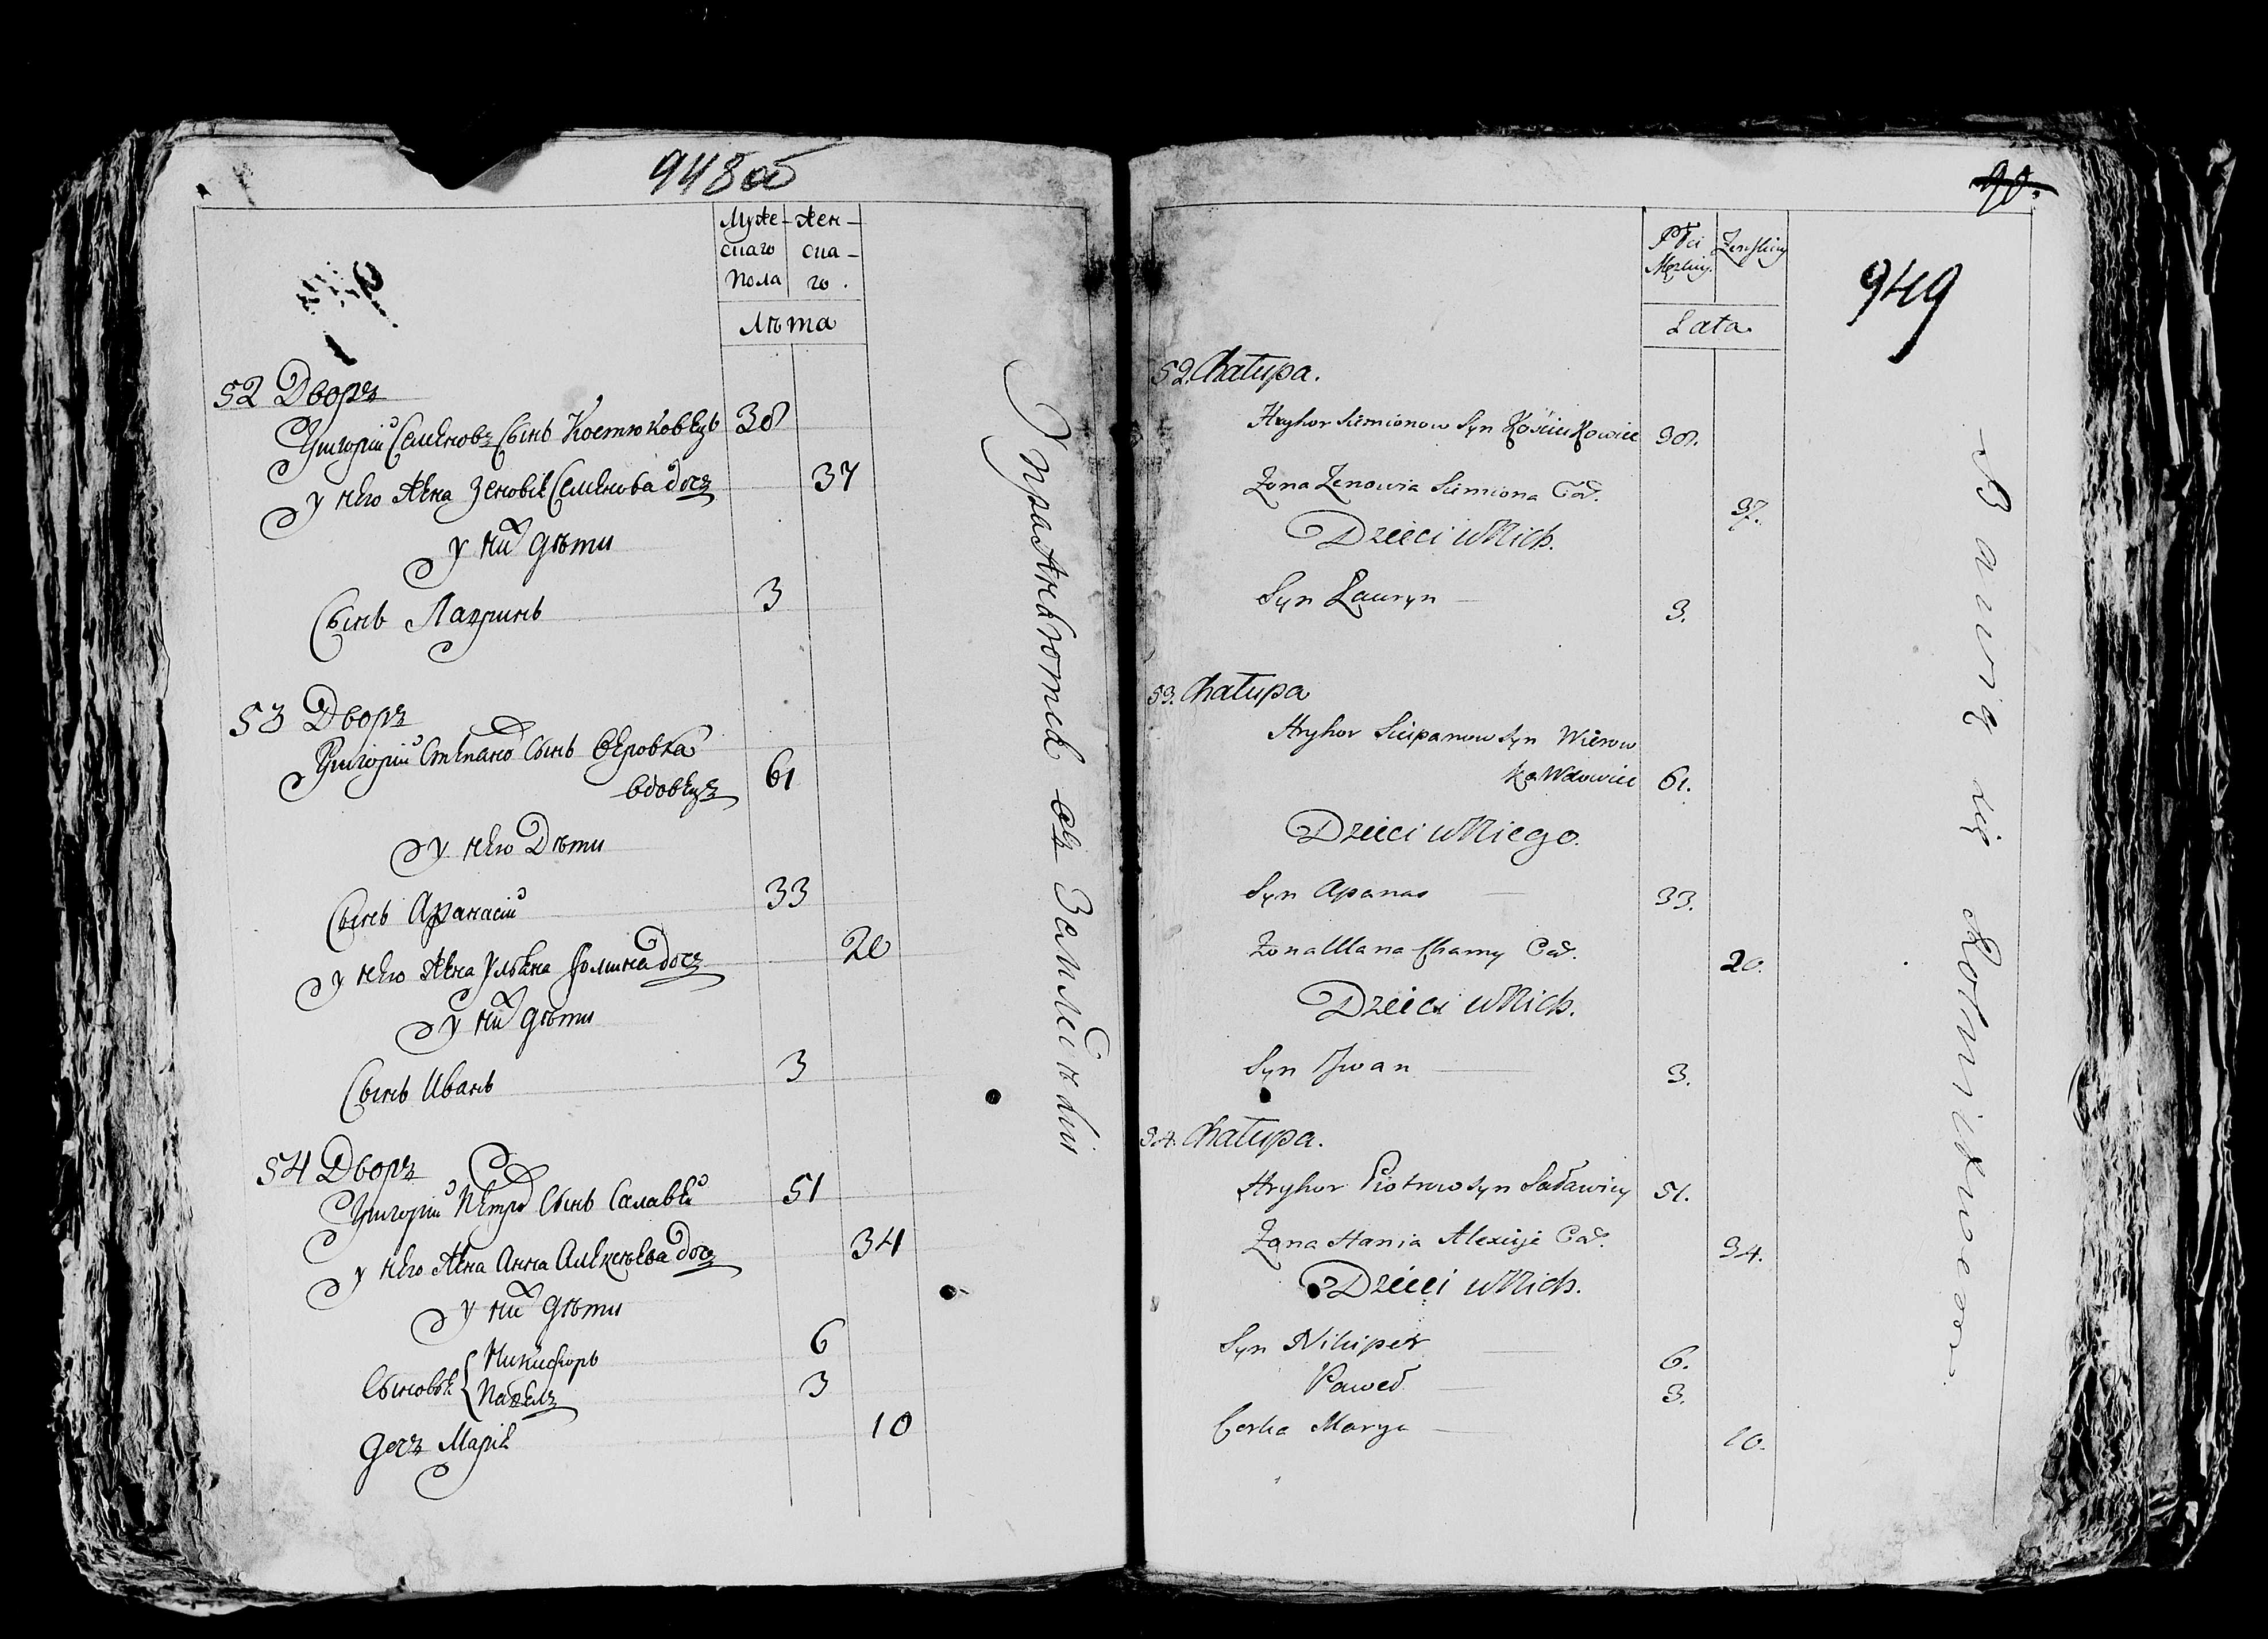 948 об
Муже- жен-
скаго ска-
пола го.
Лѣта
52 Дворъ
Григорій Семеновъ Сынъ Костюковецъ 38
у него жена Зеновіе Семенова дочъ 37
у них дѣти
Сынъ Лаврынъ 3
53 Дворъ
Григорій Степано Сынъ Веровка
вдовецъ 61
у него Дѣти
Сынъ Афанасій 33
у него жена Ульяна Фомина дочъ 20
у них дѣти
Сынъ Иванъ 3
54 Дворъ
Григорій Петро Сынъ Салавей 51
у него жена Анна Алексѣева дочъ 34
у них дѣти
Сыновье { Никифоръ 6
Павелъ 3
дочъ Маріе 10
Упражняютсе въ Земледѣліи
90.
949
Płci Zenskiey
Męzkiey
Lata
52. Chałupa.
Hryhor Siemionow Syn Kościukowiec 38.
Zona Zenowia Siemiona Cor. 37.
Dzieci u Nich.
Syn Lauryn 3.
53. Chałupa
Hryhor Sciepanow Syn Wierow
ka Wdowiec 61.
Dzieci u Niego.
Syn Apanas 33.
Zona Ulana Chamy Cor. 20.
Dzieci u Nich.
Syn Jwan 3.
54. Chałupa.
Hryhor Piotrow Syn Saławiey 51.
Zona Hania Alexieja Cor. 34.
Dzieci u Nich.
Syn Nikiper 6.
Paweł 3.
Corka Marya 10.
Bawią się Rolnictwem